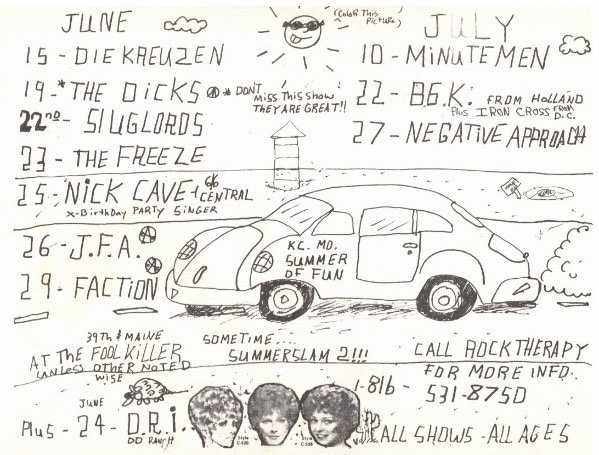 JUNE
15 - DIE KREUZEN
19 - * THE DICKS * DONT MISS THIS SHOW
THEY ARE GREAT!!
22ND - SLUGLORDS
23 - THE FREEZE
25 - NICK CAVE - C/O CENTRAL
X-BIRTHDAY PARTY SINGER
26 - J.F.A.
29 - FACTION
(COLOR THIS PICTURE)
JULY
10 - MINUTEMEN
22 - B.G.K. FROM HOLLAND
PLUS IRON CROSS FROM D.C.
27 - NEGATIVE APPROACH
K.C. MO.
SUMMER
OF FUN
39TH & MAINE
AT THE FOOLKILLER
UNLESS OTHER NOTED
WISE
SOMETIME....
SUMMERSLAM 2!!!
CALL ROCK THERAPY
FOR MORE INFO.
1-816-
531-8750
JUNE
PLUS - 24 - D.R.I.
DD RANCH
Style
C-520
Style
C-528
ALL SHOWS - ALL AGES